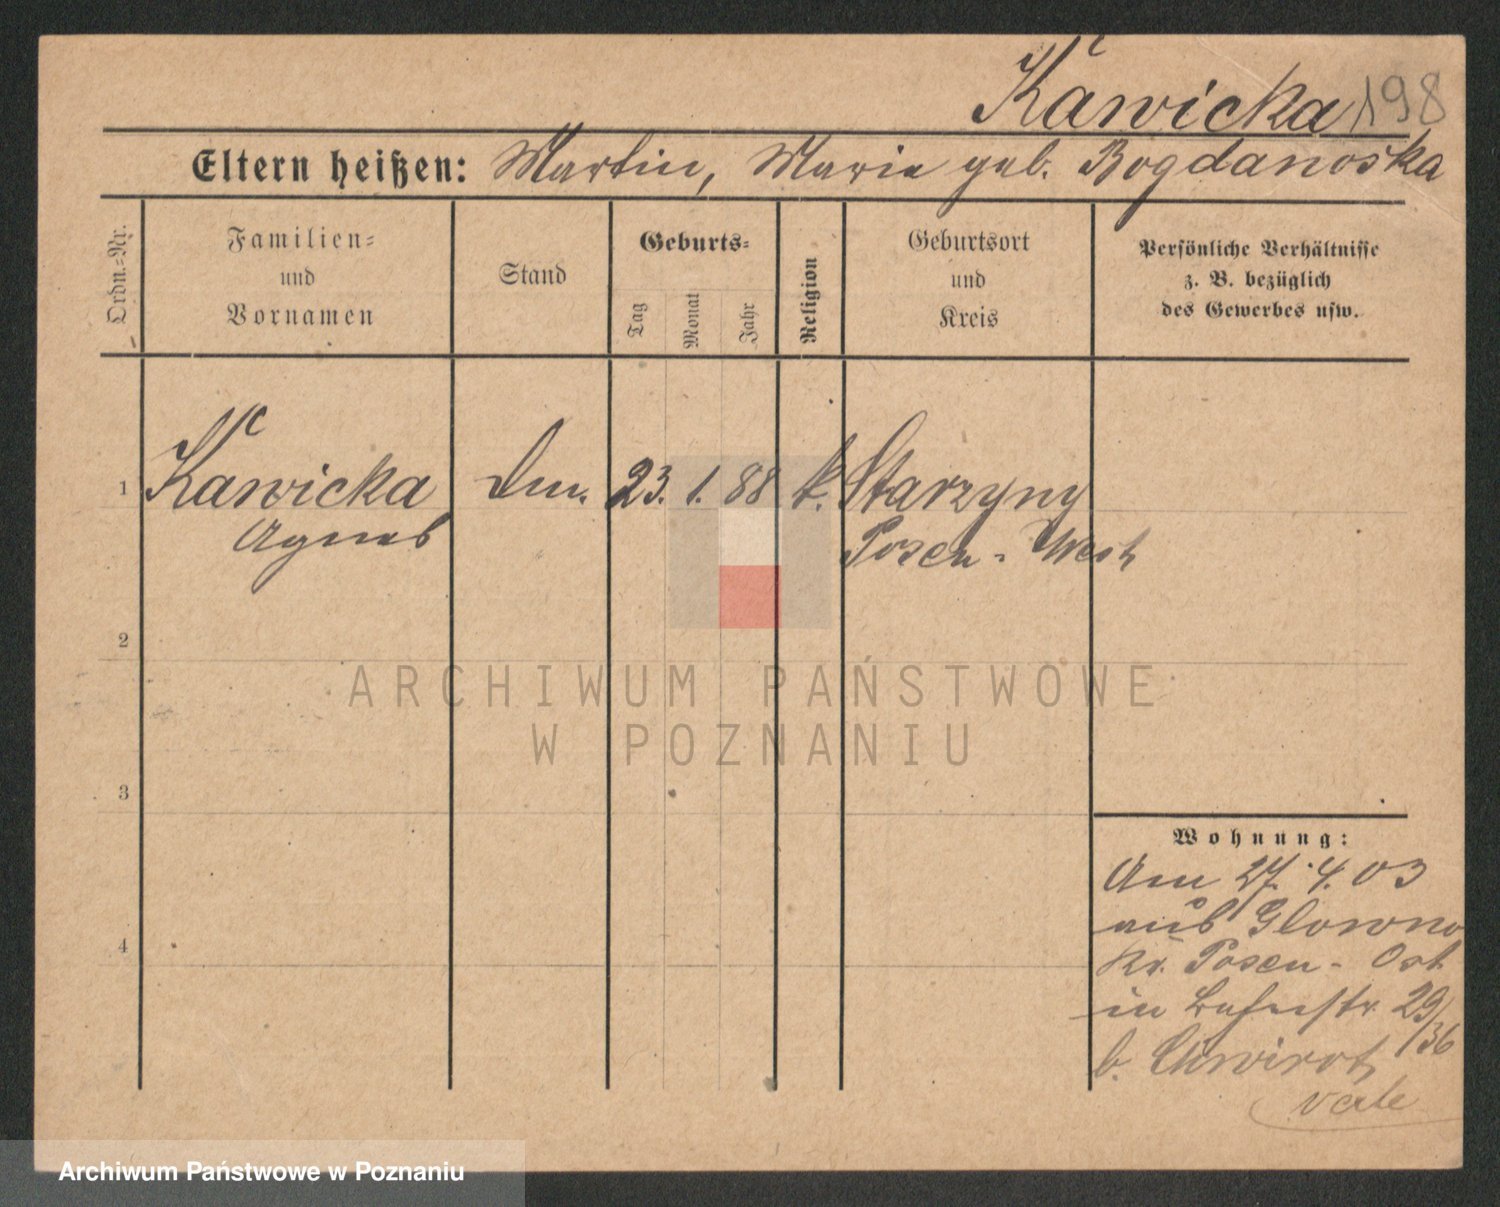 Kawicka 198
Eltern heißen: Martin, Marie geb. Bogdanoska
Ordn.-Nr.
Familien-
und
Vornamen
Stand
Geburts-
Tag
Monat
Jahr
Religion
Geburtsort
und
Kreis
Persönliche Verhältnisse
z. B. bezüglich
des Gewerbes usw.
1 Kawicka 23. 1. 88 k. Starzyny
Agnes Posen-West
2
3
4
Wohnung:
Am 27. 4. 03
aus Glowno
Kr. Posen-Ost
in 29/36
b. Chwirot
ARCHIWUM PAŃSTWOWE
W POZNANIU
Archiwum Państwowe w Poznaniu